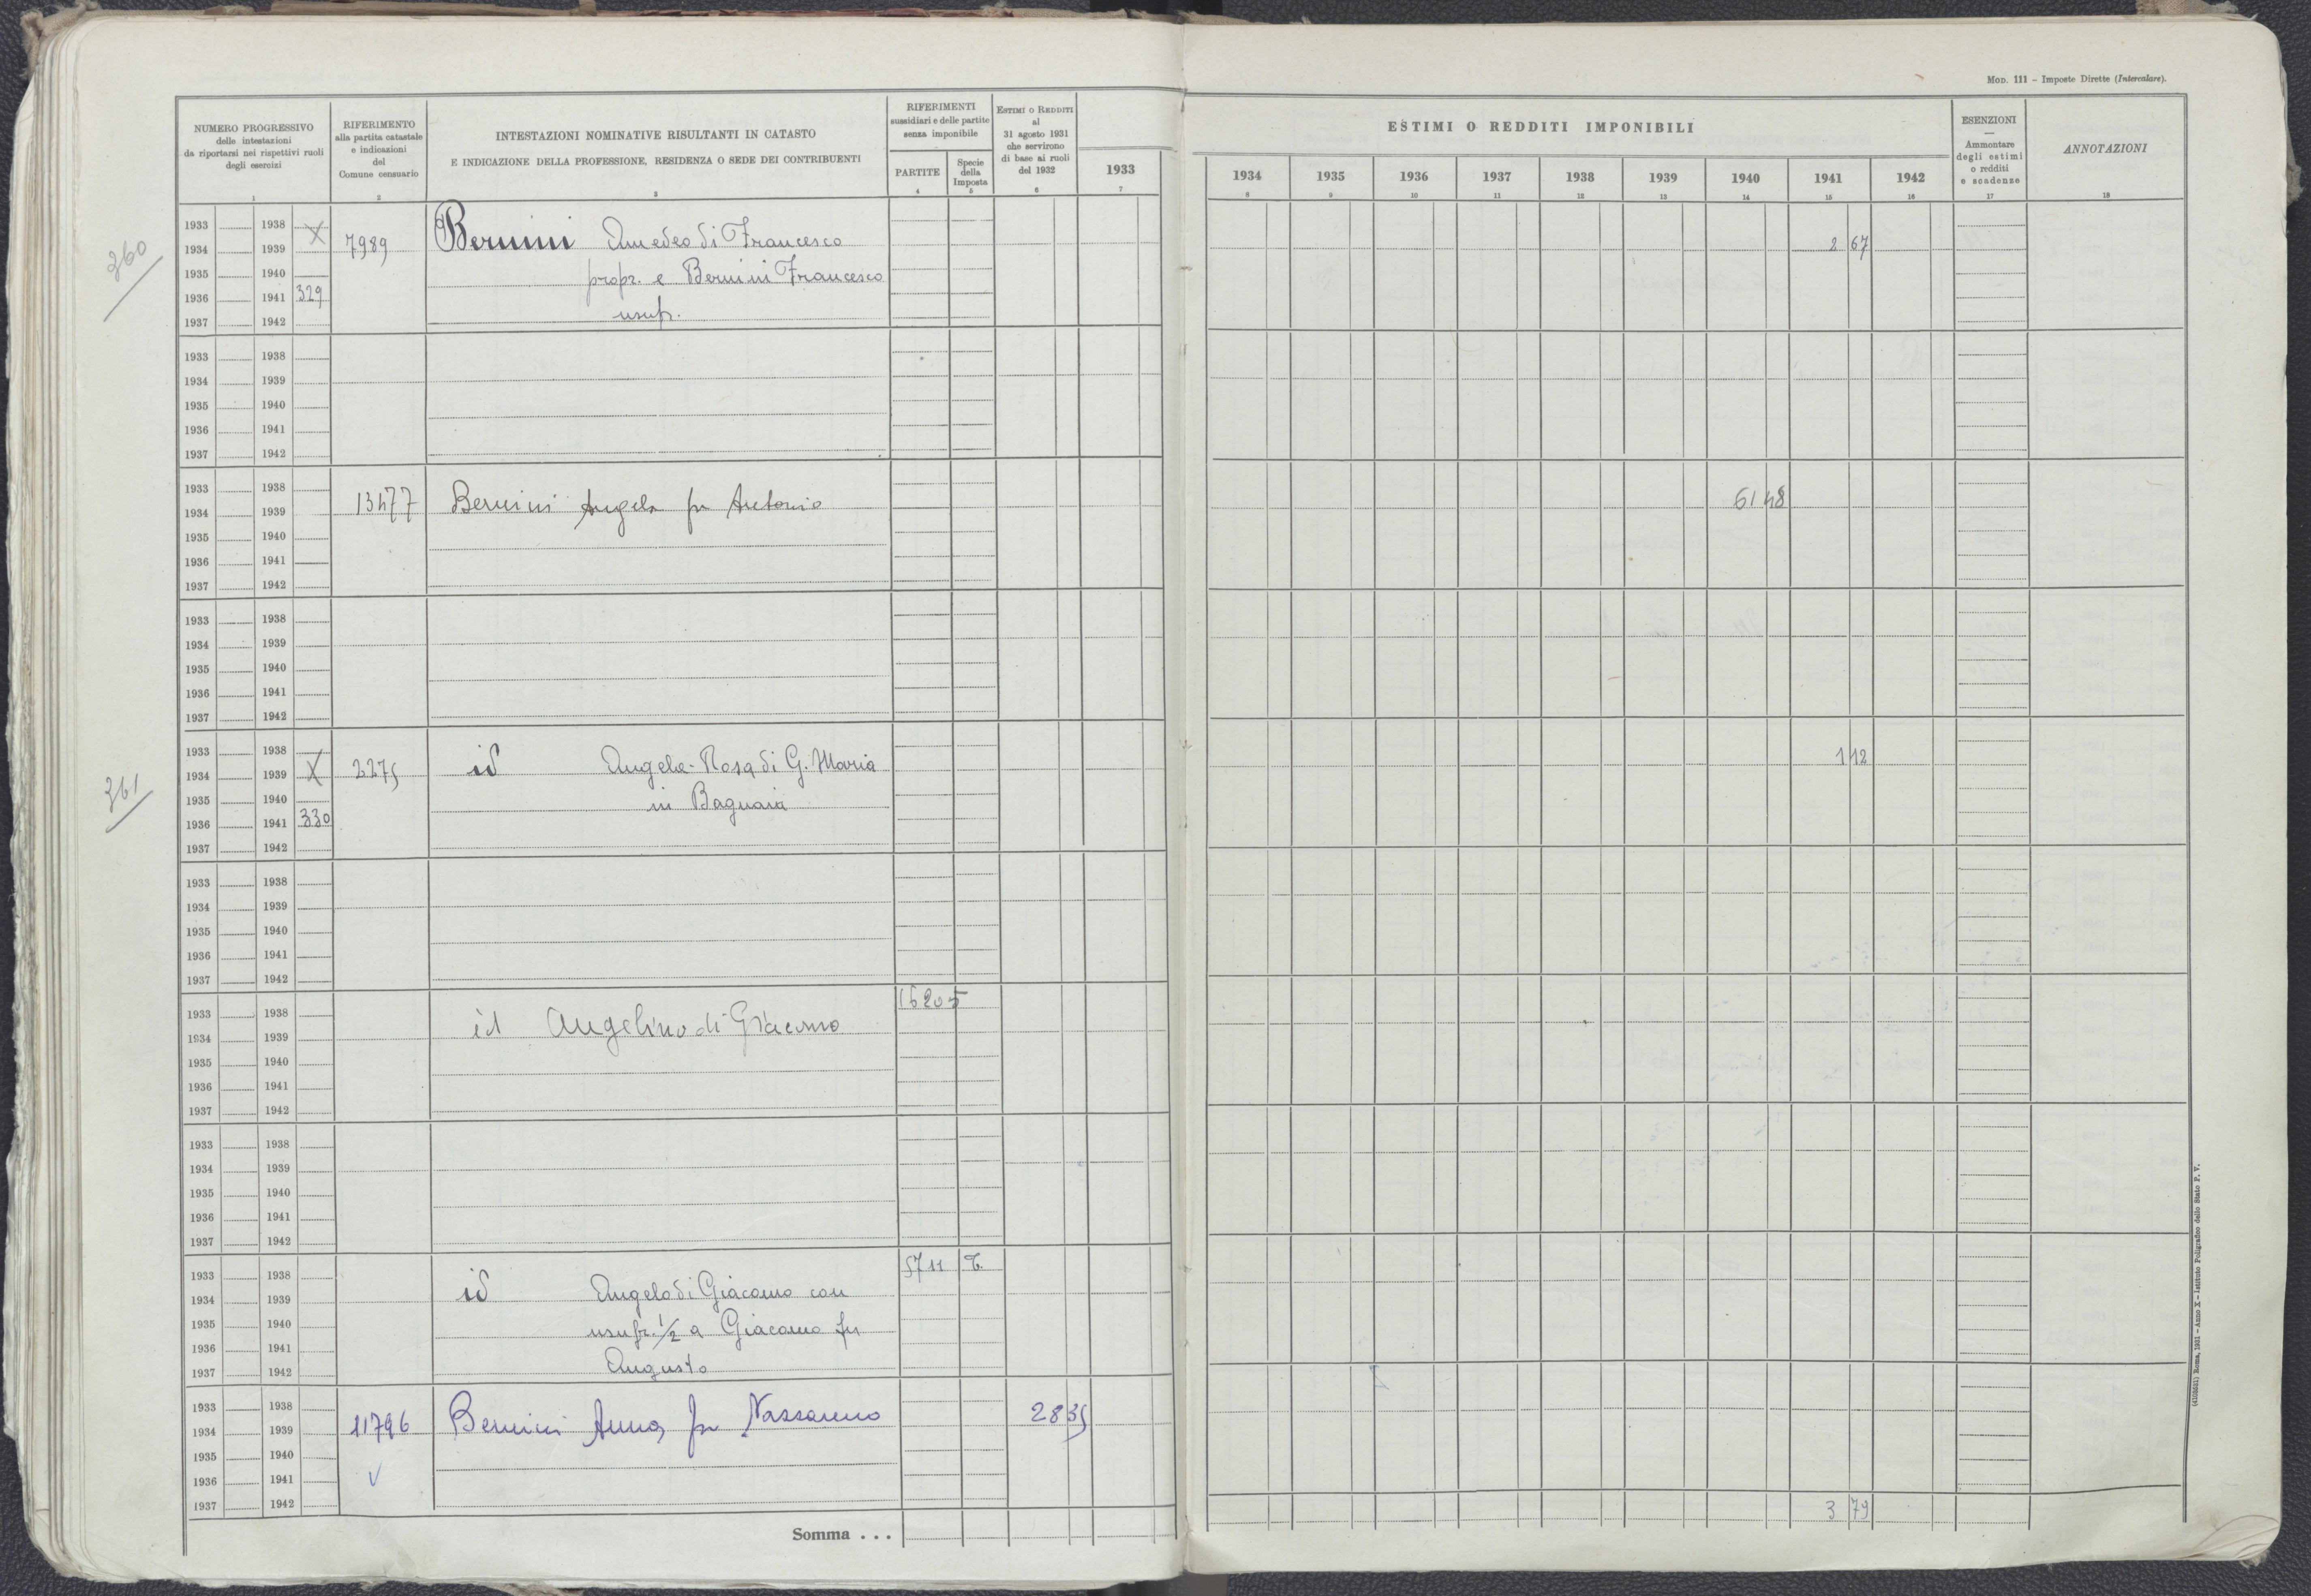 Mod. 111 - Imposte Dirette (Intercalare).
NUMERO PROGRESSIVO
delle intestazioni
da riportarsi nei rispettivi ruoli
degli esercizi
1
RIFERIMENTO
alla partita catastale
e indicazioni
del
Comune censuario
2
INTESTAZIONI NOMINATIVE RISULTANTI IN CATASTO
E INDICAZIONE DELLA PROFESSIONE, RESIDENZA O SEDE DEI CONTRIBUENTI
3
RIFERIMENTI
sussidiari e delle partite
senza imponibile
PARTITE
4
Specie
della
Imposta
5
Estimi o Redditi
al
31 agosto 1931
che servirono
di base ai ruoli
del 1932
6
1933
7
ESTIMI O REDDITI IMPONIBILI
1934 1935 1936 1937 1938 1939 1940 1941 1942
8 9 10 11 12 13 14 15 16
ESENZIONI
—
Ammontare
degli estimi
o redditi
e scadenze
17
ANNOTAZIONI
18
360
1933 1938 X
1934 1939 7989 Bernini Amedeo di Francesco 2 67
1935 1940 propr. e Bernini Francesco
1936 1941 329
1937 1942 usuf.
1933 1938
1934 1939
1935 1940
1936 1941
1937 1942
1933 1938
1934 1939 13477 Bernini Angela fu Antonio 61 48
1935 1940
1936 1941
1937 1942
1933 1938
1934 1939
1935 1940
1936 1941
1937 1942
361
1933 1938
1934 1939 X 2275 id Angela-Rosa di G. Maria 1 12
1935 1940 in Bagnaia
1936 1941 330
1937 1942
1933 1938
1934 1939
1935 1940
1936 1941
1937 1942
16205
1933 1938
1934 1939 id Angelino di Giacomo
1935 1940
1936 1941
1937 1942
1933 1938
1934 1939
1935 1940
1936 1941
1937 1942
5711 T.
1933 1938
1934 1939 id Angelo di Giacomo con
1935 1940 usufr. 1/2 a Giacomo fu
1936 1941
1937 1942 Augusto
1933 1938
1934 1939 11796 Bernini Anna fu Nazzareno 28 35
1935 1940
1936 1941 ✓
1937 1942
3 79
Somma . . .
(4103531) Roma, 1931 - Anno X - Istituto Poligrafico dello Stato P. V.